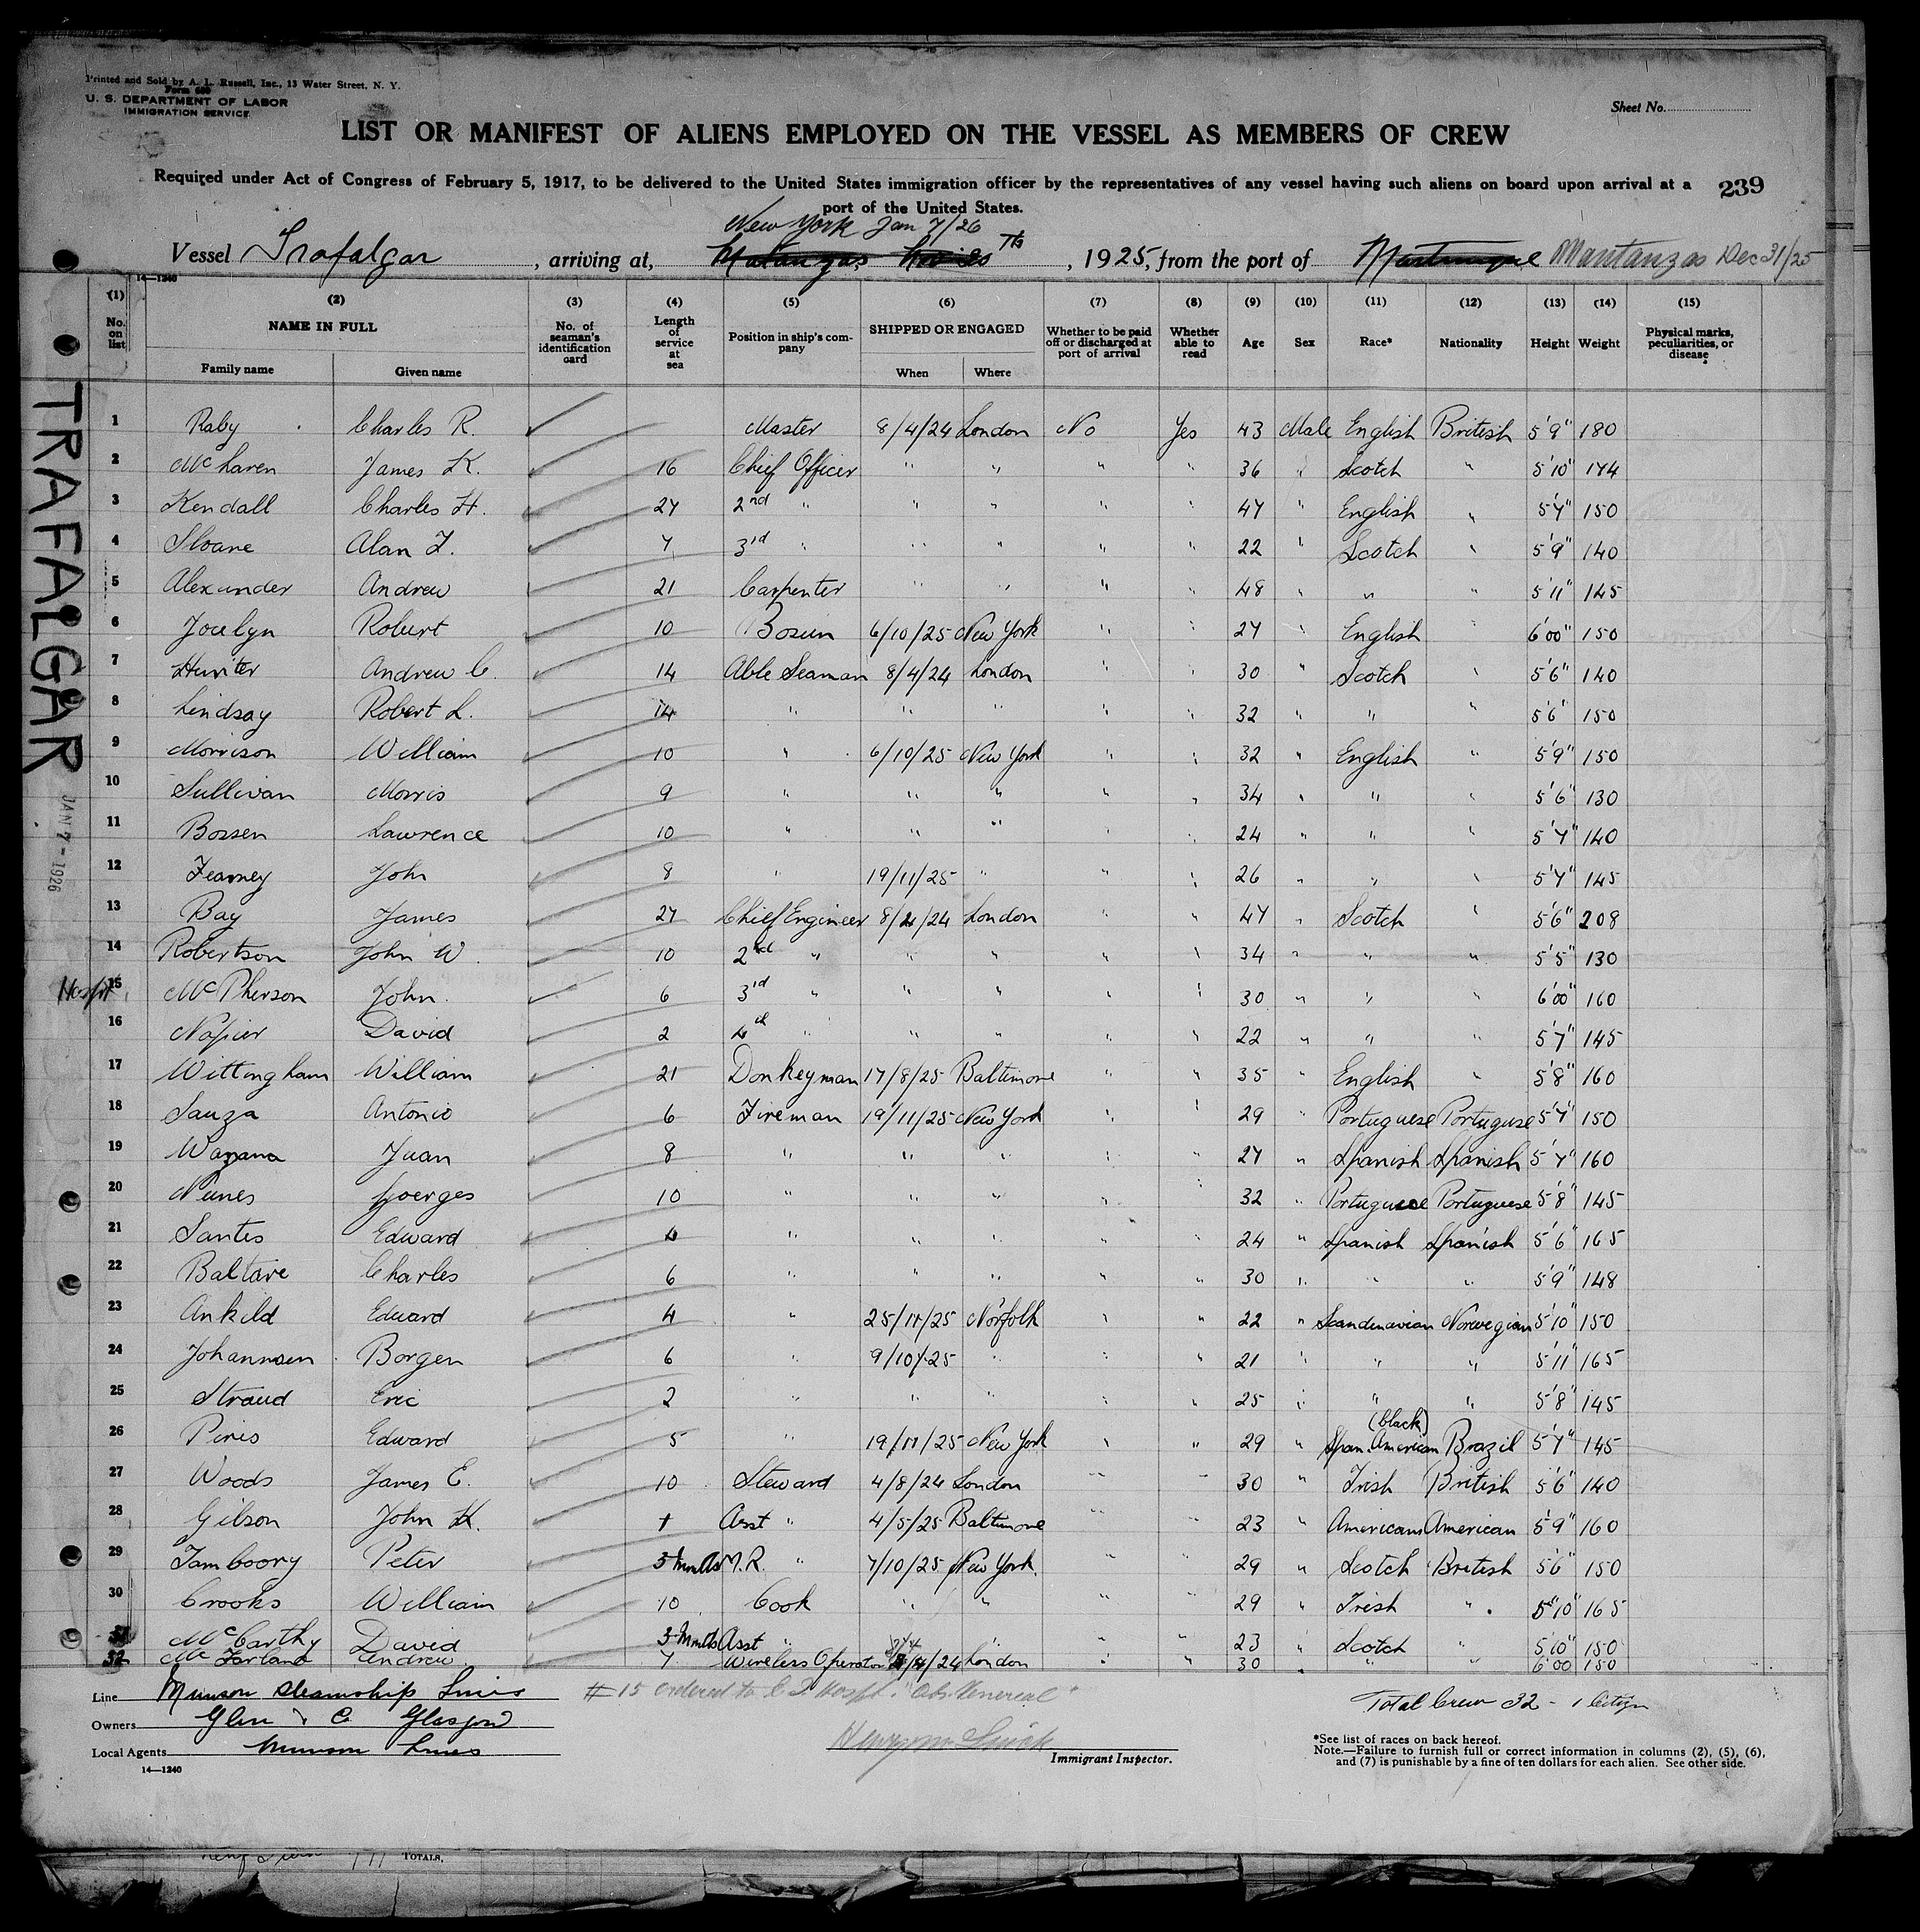 Printed and Sold by A. L. Russell, Inc., 13 Water Street, N. Y.
Form 680
U. S. DEPARTMENT OF LABOR
IMMIGRATION SERVICE
Sheet No.
LIST OR MANIFEST OF ALIENS EMPLOYED ON THE VESSEL AS MEMBERS OF CREW
Required under Act of Congress of February 5, 1917, to be delivered to the United States immigration officer by the representatives of any vessel having such aliens on board upon arrival at a
port of the United States.
239
New York Jan 7/26
Vessel Trafalgar, arriving at, Matanzas Nov 20 Th, 1925, from the port of Martinique Mantanzas Dec 31/25
14—1240
(1) (2) (3) (4) (5) (6) (7) (8) (9) (10) (11) (12) (13) (14) (15)
No. on list NAME IN FULL No. of seaman's identification card Length of service at sea Position in ship's company SHIPPED OR ENGAGED Whether to be paid off or discharged at port of arrival Whether able to read Age Sex Race* Nationality Height Weight Physical marks, peculiarities, or disease
Family name Given name When Where
1 Raby Charles R. Master 8/4/24 London No Yes 43 Male English British 5'9" 180
2 McLaren James K. 16 Chief Officer " " " " 36 " Scotch " 5'10" 174
3 Kendall Charles H. 27 2nd " " " " " 47 " English " 5'7" 150
4 Sloane Alan F. 7 3rd " " " " " 22 " Scotch " 5'9" 140
5 Alexander Andrew 21 Carpenter " " " " 48 " " " 5'11" 145
6 Jocelyn Robert 10 Bosun 6/10/25 New York " " 27 " English " 6'00" 150
7 Hunter Andrew C. 14 Able Seaman 8/4/24 London " " 30 " Scotch " 5'6" 140
8 Lindsay Robert L. 14 " " " " " 32 " " " 5'6" 150
9 Morrison William 10 " 6/10/25 New York " " 32 " English " 5'9" 150
10 Sullivan Morris 9 " " " " " 34 " " " 5'6" 130
11 Bossen Lawrence 10 " " " " " 24 " " " 5'7" 140
12 Fearney John 8 " 19/11/25 " " " 26 " " " 5'7" 145
13 Bay James 27 Chief Engineer 8/4/24 London " " 47 " Scotch " 5'6" 208
14 Robertson John W. 10 2nd " " " " " 34 " " " 5'5" 130
Hospit. 15 McPherson John. 6 3rd " " " " " 30 " " " 6'00" 160
16 Napier David 2 4th " " " " " 22 " " " 5'7" 145
17 Wittingham William 21 Donkeyman 17/8/25 Baltimore " " 35 " English " 5'8" 160
18 Sauza Antonio 6 Fireman 19/11/25 New York " " 29 " Portuguese Portuguese 5'7" 150
19 Juan 8 " " " " " 27 " Spanish Spanish 5'7" 160
20 Nunes Goerges 10 " " " " " 32 " Portuguese Portuguese 5'8" 145
21 Santis Edward 4 " " " " " 24 " Spanish Spanish 5'6" 165
22 Baltare Charles 6 " " " " " 30 " " " 5'9" 148
23 Ankild Edward 4 " 25/11/25 Norfolk " " 22 " Scandinavian Norwegian 5'10" 150
24 Johannsen Borgen 6 " 9/10/25 " " " 21 " " " 5'11" 165
25 Straud Eric 2 " " " " " 25 " " " 5'8" 145
(black)
26 Piris Edward 5 " 19/11/25 New York " " 29 " Span. American Brazil 5'7" 145
27 Woods James E. 10 Steward 4/8/24 London " " 30 " Irish British 5'6" 140
28 Gibson John K. 1 Asst " 4/5/25 Baltimore " " 23 " American American 5'9" 160
29 Tamboory Peter 3 mnths M.R. " 7/10/25 New York. " " 29 " Scotch British 5'6" 150
30 Crooks William 10 Cook " " " " 29 " Irish " 5'10" 165
31 McCarthy David 3 Mnths Asst " " " 23 " Scotch " 5'10" 150
32 McFarland Andrew 7 Wireless Operator /24 London " " 30 " " " 6'00 150
Line Munson Steamship Lines
#15 ordered to Hosp.
Total Crew 32 - 1 Citizn
Owners Glen & Co Glasgow
Local Agents Munson Lines
Immigrant Inspector.
*See list of races on back hereof.
Note.—Failure to furnish full or correct information in columns (2), (5), (6),
and (7) is punishable by a fine of ten dollars for each alien. See other side.
14—1240
TRAFALGAR
JAN 7 - 1926
TOTALS.